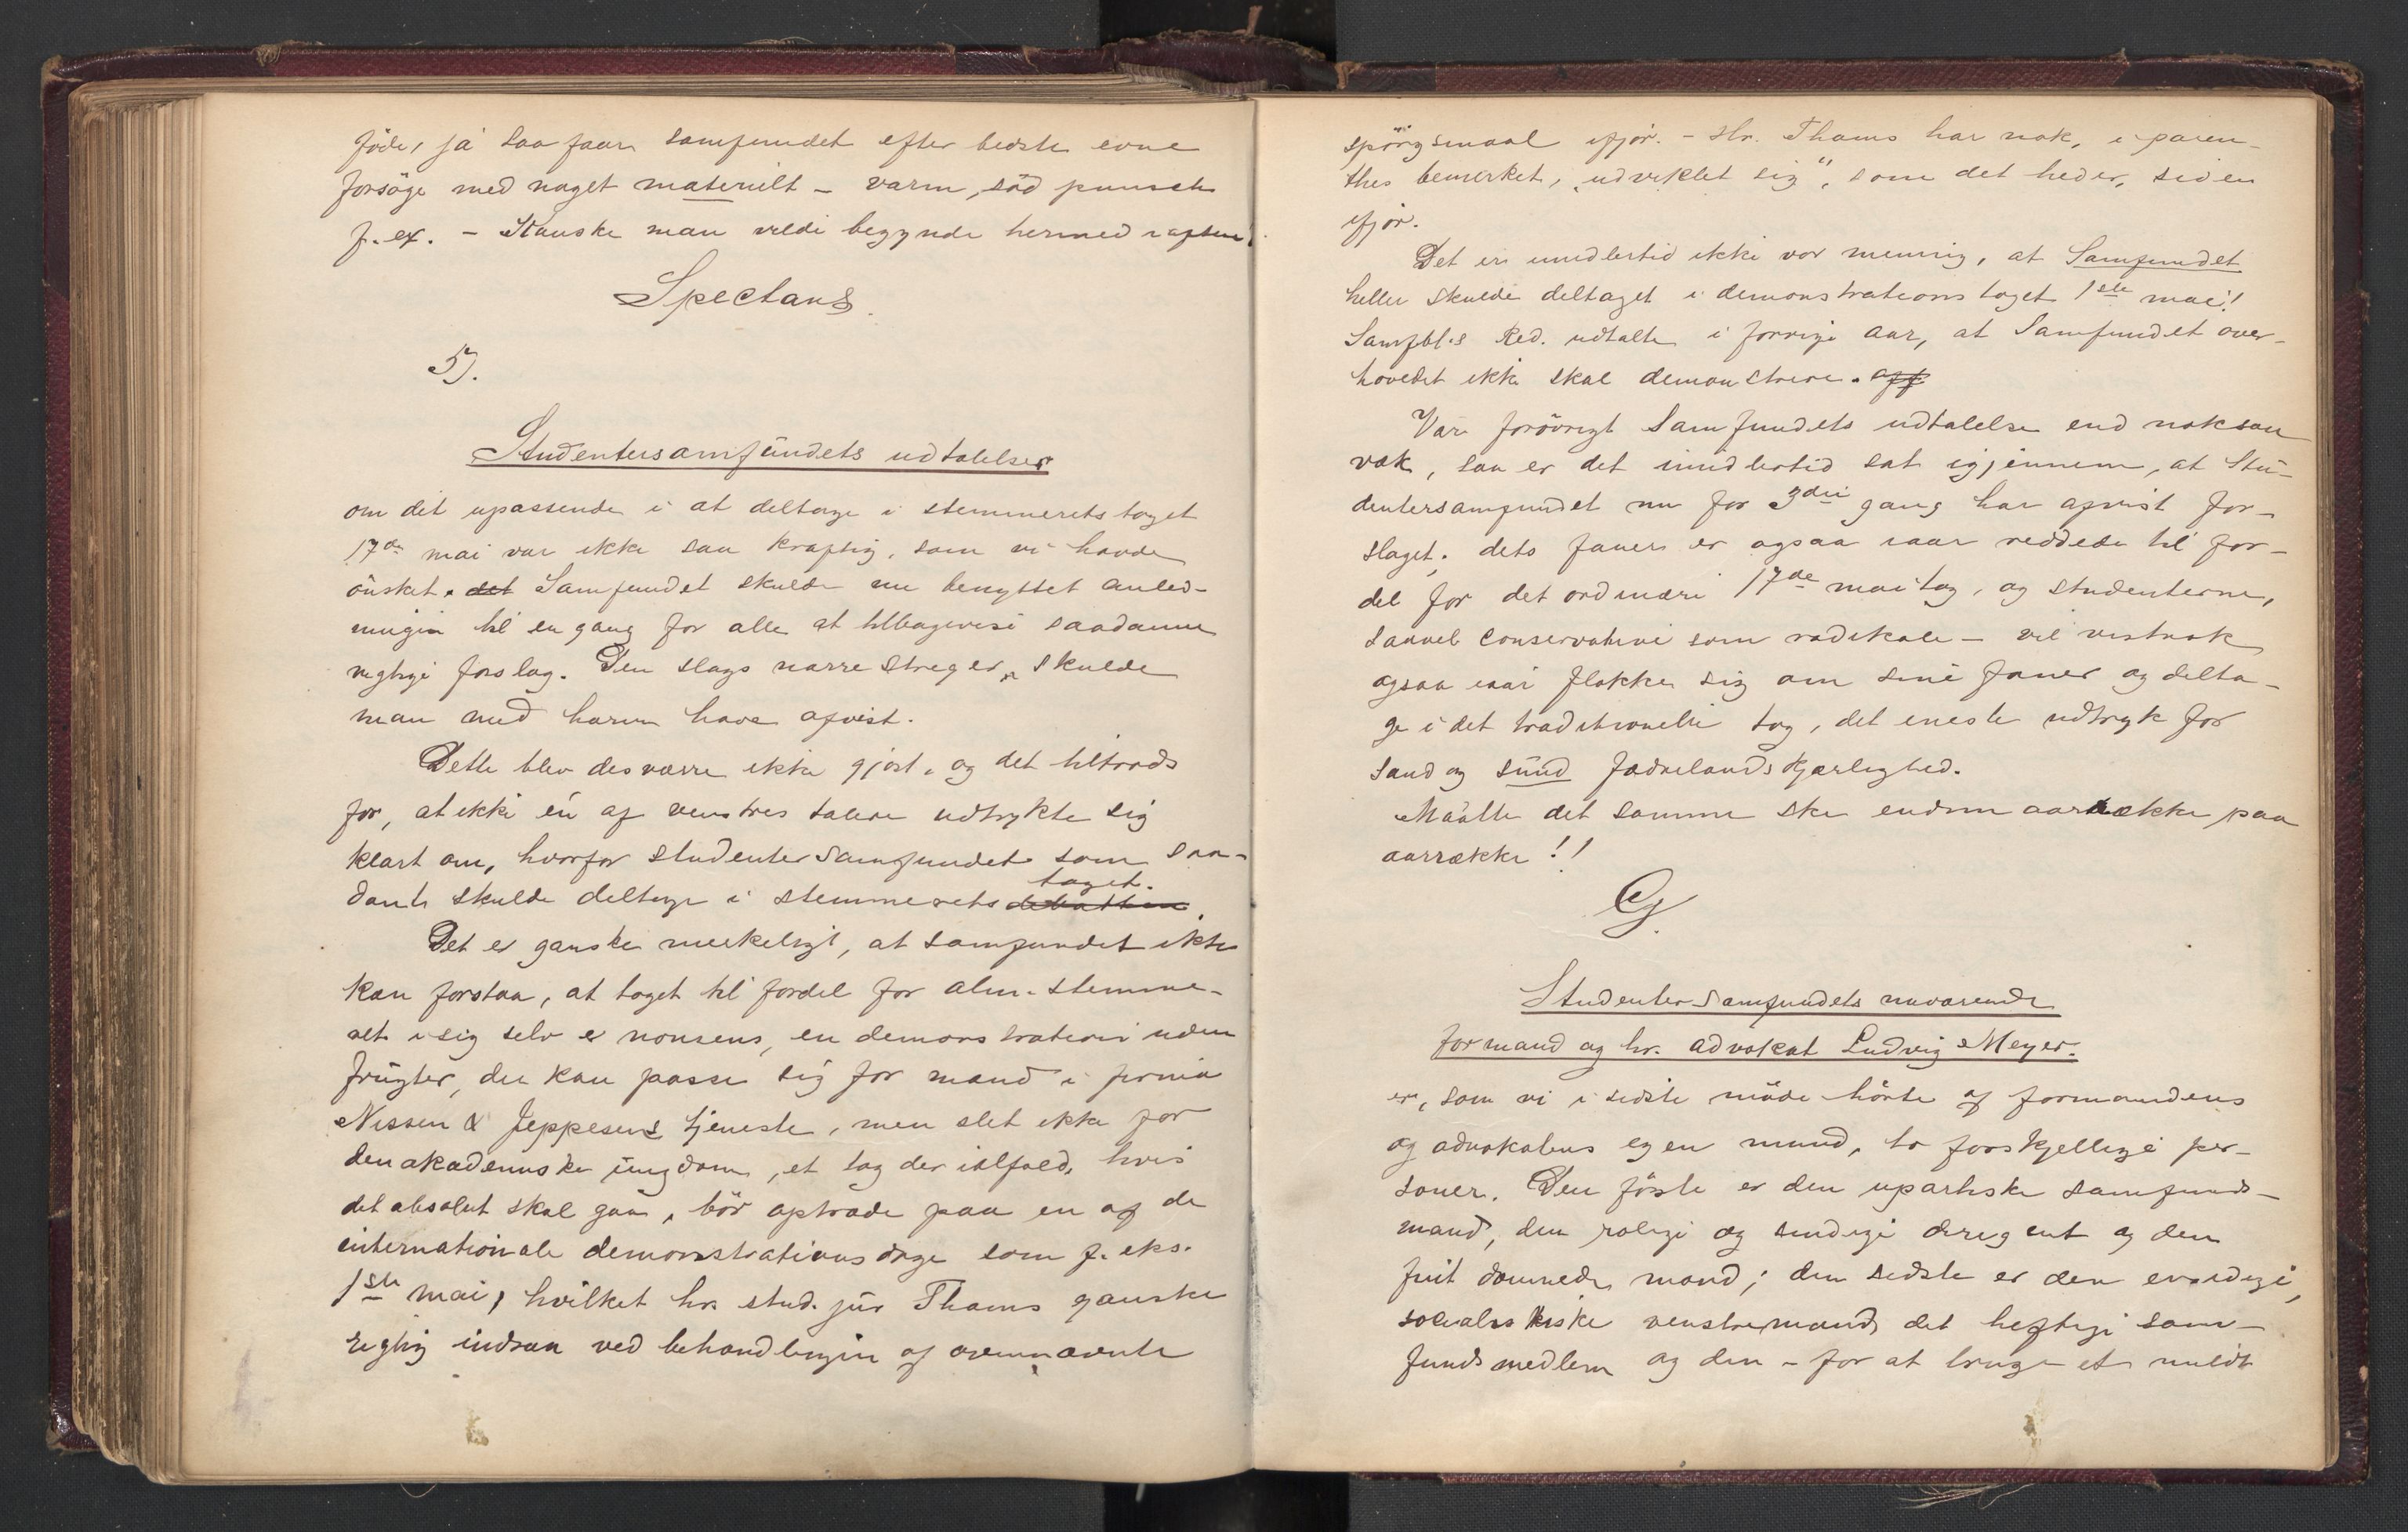 föde, ja saa faar samfundet efter bedste evne
forsöge med noget materielt - varm, söd punsch
f. ex. - Kanske man vilde begynde hermed iaften!
Spectans.
5).
Studentersamfundets udtalelser
om det upassende i at deltage i stemmeretstoget
17de mai var ikke saa kraftig, som vi havde
önsket. det Samfundet skulde nu benyttet anled-
ningen til en gang for alle at tilbagevise saadanne
 forslag. Den slags narrestreger, skulde
man med harm have afvist.
Dette blev desværre ikke gjort, og det tiltrods
for, at ikke én af venstres talere udtrykte sig
klart om, hvorfor studentersamfundet som saa-
dant skulde deltage i stemmerets debatten toget.
Det er ganske merkeligt, at samfundet ikke
kan forstaa, at toget til fordel for alm. stemme-
ret i sig selv er nonsens, en demonstration uden
frugter, der kan passe sig for mænd i firma
Nissen & Jeppesens tjeneste, men slet ikke for
den akademiske ungdom, et tog der ialfald, hvis
det absolut skal gaa, bör optræde paa en af de
internationale demonstrationsdage som f. eks.
1ste mai, hvilket hr. stud. jur Thams ganske
rigtig indsaa ved behandlingen af ovennævnte
spörgsmaal ifjor. - Hr. Thams har nok, i paren-
thes bemerket, "udviklet sig", som det heder, siden
ifjor.
Det er imidlertid ikke vor mening, at Samfundet
heller skulde deltaget i demonstrationstoget 1ste mai!
Samfbl.s Red. udtalte i forrige aar, at Samfundet over-
hovedet ikke skal demonstrere. off
Var forövrigt Samfundets udtalelse end noksaa
vak, saa er det imidlertid sat igjennem, at Stu-
dentersamfundet nu for 3die gang har afvist for-
slaget; dets faner er ogsaa iaar reddede til for-
del for det ordinære 17de maitog, og studenterne,
saavel conservative som radikale - vil vistnok
ogsaa iaar flokke sig om sine faner og delta-
ge i det traditionelle tog, det eneste udtryk for
sand og sund fædrelandskjærlighed.
Maatte det samme ske endnu aarrække paa
aarrække!!
Studentersamfundets nuværende
formand og hr. advokat Ludvig Meyer.
er, som vi i sidste möde hörte af formandens
og advokatens egen mund, to forskjellige per-
soner. Den förste er den upartiske samfunds-
mand, den rolige og sindige dirigent og den
fint dannede mand; den sidste er den ivrige,
socialistiske venstremand, det heftige sam-
fundsmedlem og den - for at bruge et mildt